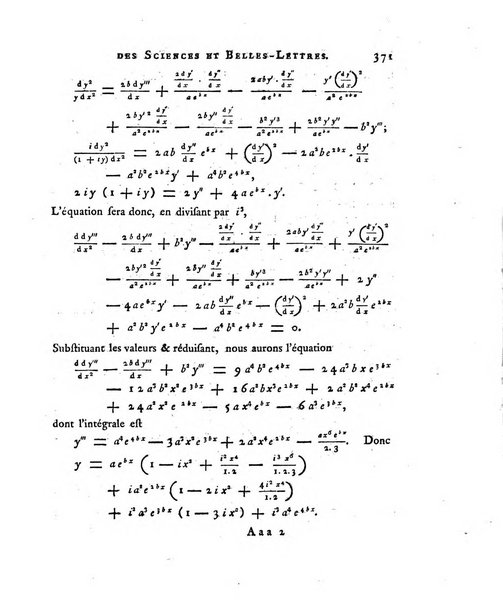 DES SCIENCES ET BELLES-LETTRES. 371
dy²/ydx² = 2bdy'''/dx + (2dy'/dx · dy''/dx)/ae^{bx} − (2aby' · dy''/dx)/ae^{bx} − y'(dy'/dx)²/a²e^{2bx}
+ (2by'² dy'/dx)/a²e^{2bx} − (2by'' dy'/dx)/ae^{bx} − b²y'³/a²e^{2bx} + 2b²y'y''/ae^{bx} − b²y''';
idy²/(1 + iy)dx² = 2ab dy''/dx e^{bx} + (dy'/dx)² − 2a²be^{2bx} · dy'/dx
− a²b²e^{2bx}y' + a⁴b²e^{4bx},
2iy (1 + iy) = 2y'' + 4ae^{bx}.y'.
L'équation sera donc, en divisant par i³,
ddy'''/dx² − 2bdy'''/dx + b²y''' − (2dy'/dx · dy''/dx)/ae^{bx} + (2aby' dy''/dx)/ae^{bx} + y'(dy'/dx)²/a²e^{2bx}
− (2by'² dy'/dx)/a²e^{2bx} + (2by'' dy'/dx)/ae^{bx} + b²y'³/a²e^{2bx} − 2b²y'y''/ae^{bx} + 2y''
− 4ae^{bx}y' − 2ab dy''/dx e^{bx} − (dy'/dx)² + 2a²b dy'/dx e^{2bx}
+ a²b²y'e^{2bx} − a⁴b²e^{4bx} = 0.
Substituant les valeurs & réduisant, nous aurons l'équation
ddy'''/dx² − 2bdy'''/dx + b²y''' = 9a⁴b²e^{4bx} − 24a³bxe^{3bx}
− 12a³b²x²e^{3bx} + 16a²bx³e^{2bx} + 2a²b²x⁴e^{2bx}
+ 24a²x²e^{2bx} − 5ax⁴e^{bx} − 6a³e^{3bx},
dont l'intégrale est
y''' = a⁴e^{4bx} − 3a³x²e^{3bx} + 2a²x⁴e^{2bx} − ax⁶e^{bx}/2.3. Donc
y = ae^{bx} (1 − ix² + i²x⁴/1.2 − i³x⁶/1.2.3)
+ ia²e^{2bx} (1 − 2ix² + 4i²x⁴/1.2)
+ i²a³e^{3bx} (1 − 3ix²) + i³a⁴e^{4bx}.
Aaa 2